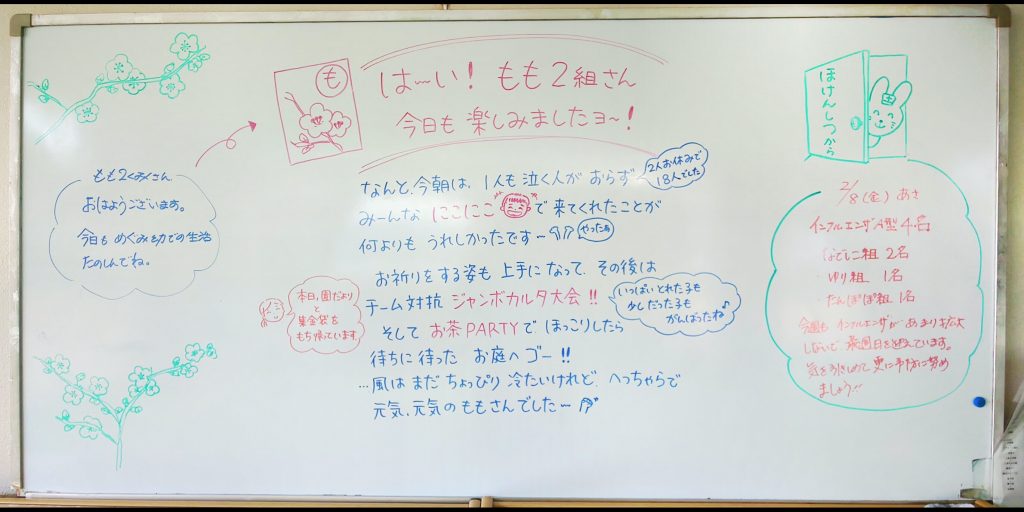 も
は〜い！ もも2組さん
今日も 楽しみましたヨ〜！
もも2くみさん
おはようございます。
今日も めぐみ幼での生活
たのしんでね。
なんと、今朝は、1人も泣く人が おらず
2人お休みで
18人でした
みーんな にこにこ で来てくれたことが
何よりも うれしかったです〜
やったね
お祈りをする姿も 上手になって、その後は
チーム対抗 ジャンボカルタ大会!!
いっぱいとれた子も
少しだった子も
がんばったね♪
本日、園だより
と
集金袋を
もち帰っています
そして お茶PARTYで ほっこりしたら
待ちに待った お庭へゴー!!
…風は まだ ちょっぴり 冷たいけれど、へっちゃらで
元気、元気の ももさんでした〜
ほけんしつから
2/8(金) あさ
インフルエンザA型 4名
なでしこ組 2名
・ゆり組 1名
・たんぽぽ組 1名
今週も インフルエンザが あまり拡大
しないで 最週日を迎えています。
気を引きしめて 更に予防に努め
ましょう!!